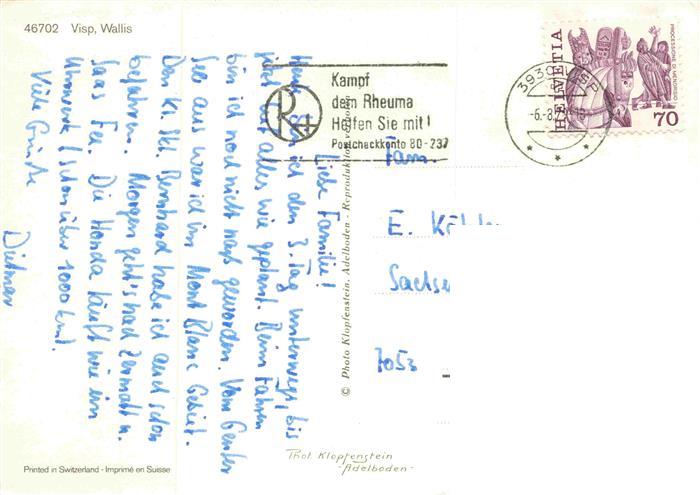 46702 Visp, Wallis
Liebe Familie!
Heute bin ich den 3. Tag unterwegs, bis
jetzt ist alles wie geplant. Beim Fahren
bin ich noch nicht naß geworden. Vom Genfer
See aus war ich im Mont Blanc Gebiet.
Den Kl. St. Bernhard habe ich auch schon
befahren. Morgen geht's nach Zermatt u.
Saas Fee. Die Honda läuft wie ein
Uhrwerk (schon über 1000 km).
Viele Grüße
Dietmar
Printed in Switzerland - Imprimé en Suisse
© Photo Klopfenstein, Adelboden - Reproduktion verboten
Phot. Klopfenstein
-Adelboden-
R+
Kampf
dem Rheuma
Helfen Sie mit!
Postcheckkonto 80-237
3930 VISP
-6.-8
HELVETIA
PROCESSIONE DI MENDRISIO
70
Fam.
E.
7053